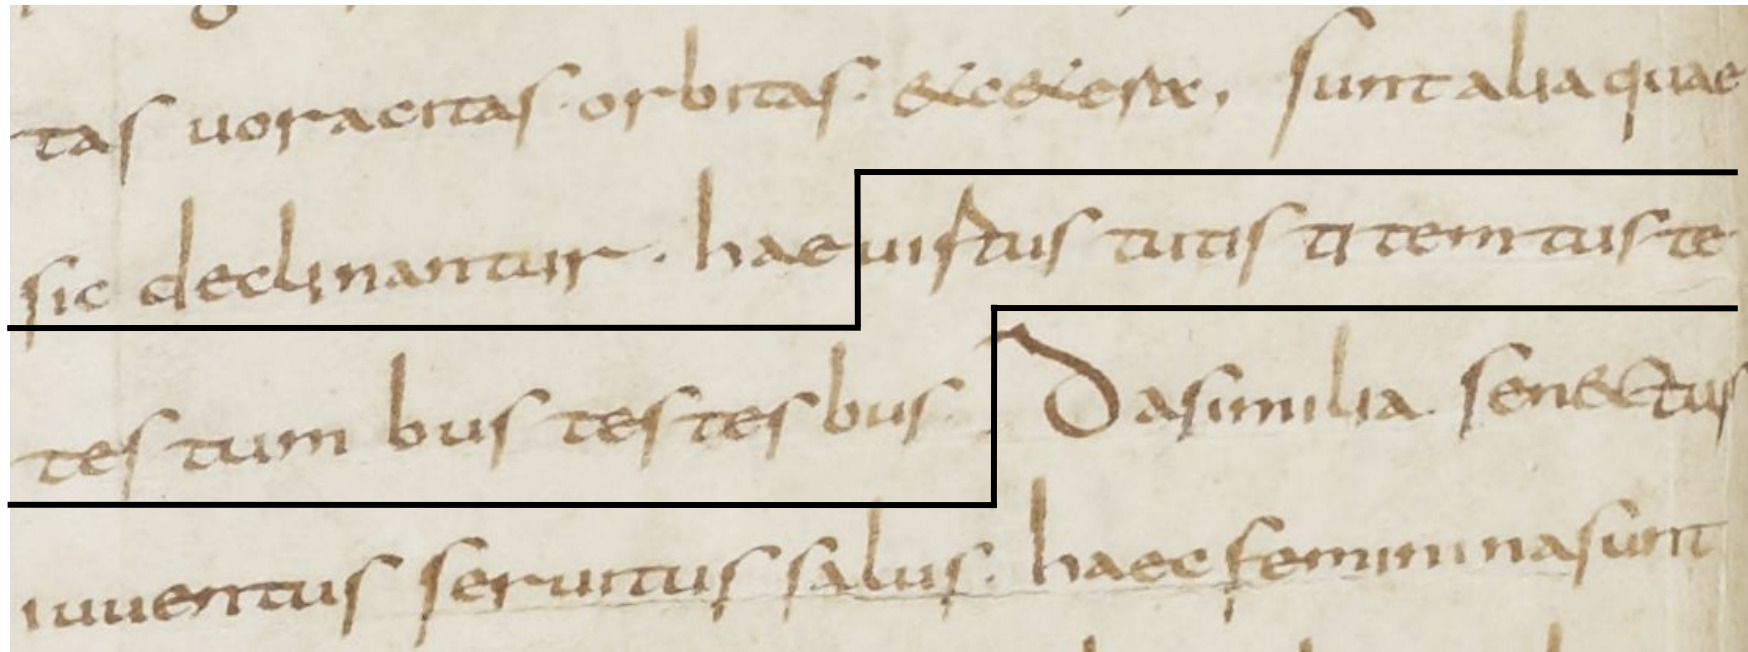 tas uoracitas · orbitas · sunt alia quae
sic declinantur · hae uirtus tutis ti tem tus te
tes tum bus tes tes bus · Da similia senectus
iuuentus seruitus salus · haec feminina sunt